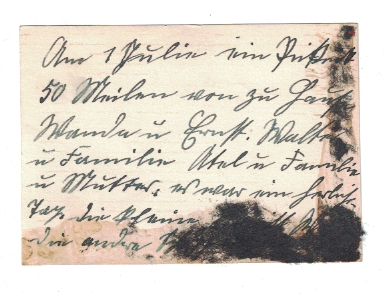 Am 1 Julie ein Pikni
50 Meilen von zu Haus
Wanda u Ernst. Walter
u Familie Atel u Familie
u Mutter; es war ein herlich
Tag. die kleine
die andere